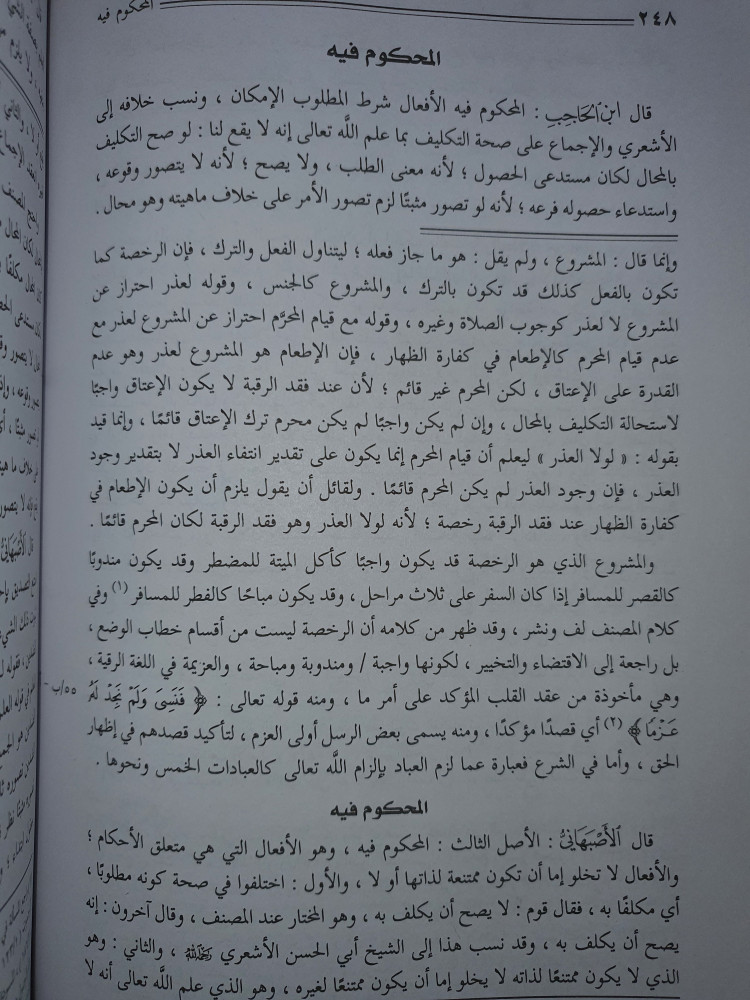 ٢٤٨
المحكوم فيه
المحكوم فيه
قال ابن الحاجب : المحكوم فيه الأفعال شرط المطلوب الإمكان ، ونسب خلافه إلى
الأشعري والإجماع على صحة التكليف بما علم الله تعالى إنه لا يقع لنا : لو صح التكليف
بالمحال لكان مستدعى الحصول ؛ لأنه معنى الطلب ، ولا يصح ؛ لأنه لا يتصور وقوعه ،
واستدعاء حصوله فرعه ؛ لأنه لو تصور مثبتًا لزم تصور الأمر على خلاف ماهيته وهو محال .
وإنما قال : المشروع ، ولم يقل : هو ما جاز فعله ؛ ليتناول الفعل والترك ، فإن الرخصة كما
تكون بالفعل كذلك قد تكون بالترك ، والمشروع كالجنس ، وقوله لعذر احتراز عن
المشروع لا لعذر كوجوب الصلاة وغيره ، وقوله مع قيام المحرَّم احتراز عن المشروع لعذر مع
عدم قيام المحرم كالإطعام في كفارة الظهار ، فإن الإطعام هو المشروع لعذر وهو عدم
القدرة على الإعتاق ، لكن المحرم غير قائم ؛ لأن عند فقد الرقبة لا يكون الإعتاق واجبًا
لاستحالة التكليف بالمحال ، وإن لم يكن واجبًا لم يكن محرم ترك الإعتاق قائمًا ، وإنما قيد
بقوله : « لولا العذر » ليعلم أن قيام المحرم إنما يكون على تقدير انتفاء العذر لا بتقدير وجود
العذر ، فإن وجود العذر لم يكن المحرم قائمًا . ولقائل أن يقول يلزم أن يكون الإطعام في
كفارة الظهار عند فقد الرقبة رخصة ؛ لأنه لولا العذر وهو فقد الرقبة لكان المحرم قائمًا .
والمشروع الذي هو الرخصة قد يكون واجبًا كأكل الميتة للمضطر وقد يكون مندوبًا
كالقصر للمسافر إذا كان السفر على ثلاث مراحل ، وقد يكون مباحًا كالفطر للمسافر (١) وفي
كلام المصنف لف ونشر ، وقد ظهر من كلامه أن الرخصة ليست من أقسام خطاب الوضع ،
بل راجعة إلى الاقتضاء والتخيير ، لكونها واجبة / ومندوبة ومباحة ، والعزيمة في اللغة الرقية ،
٥٥/ب -
وهي مأخوذة من عقد القلب المؤكد على أمر ما ، ومنه قوله تعالى : ﴿ فَنَسِىَ وَلَمْ نَجِدْ لَهُۥ
عَزْمًا ﴾ (٢) أي قصدًا مؤكدًا ، ومنه يسمى بعض الرسل أولى العزم ، لتأكيد قصدهم في إظهار
الحق ، وأما في الشرع فعبارة عما لزم العباد بإلزام الله تعالى كالعبادات الخمس ونحوها .
المحكوم فيه
قال الأصبهاني : الأصل الثالث : المحكوم فيه ، وهو الأفعال التي هي متعلق الأحكام ؛
والأفعال لا تخلو إما أن تكون ممتنعة لذاتها أو لا ، والأول : اختلفوا في صحة كونه مطلوبًا ،
أي مكلفًا به ، فقال قوم : لا يصح أن يكلف به ، وهو المختار عند المصنف ، وقال آخرون : إنه
يصح أن يكلف به ، وقد نسب هذا إلى الشيخ أبي الحسن الأشعري رحمه الله ، والثاني : وهو
الذي لا يكون ممتنعًا لذاته لا يخلو إما أن يكون ممتنعًا لغيره ، وهو الذي علم الله تعالى أنه لا